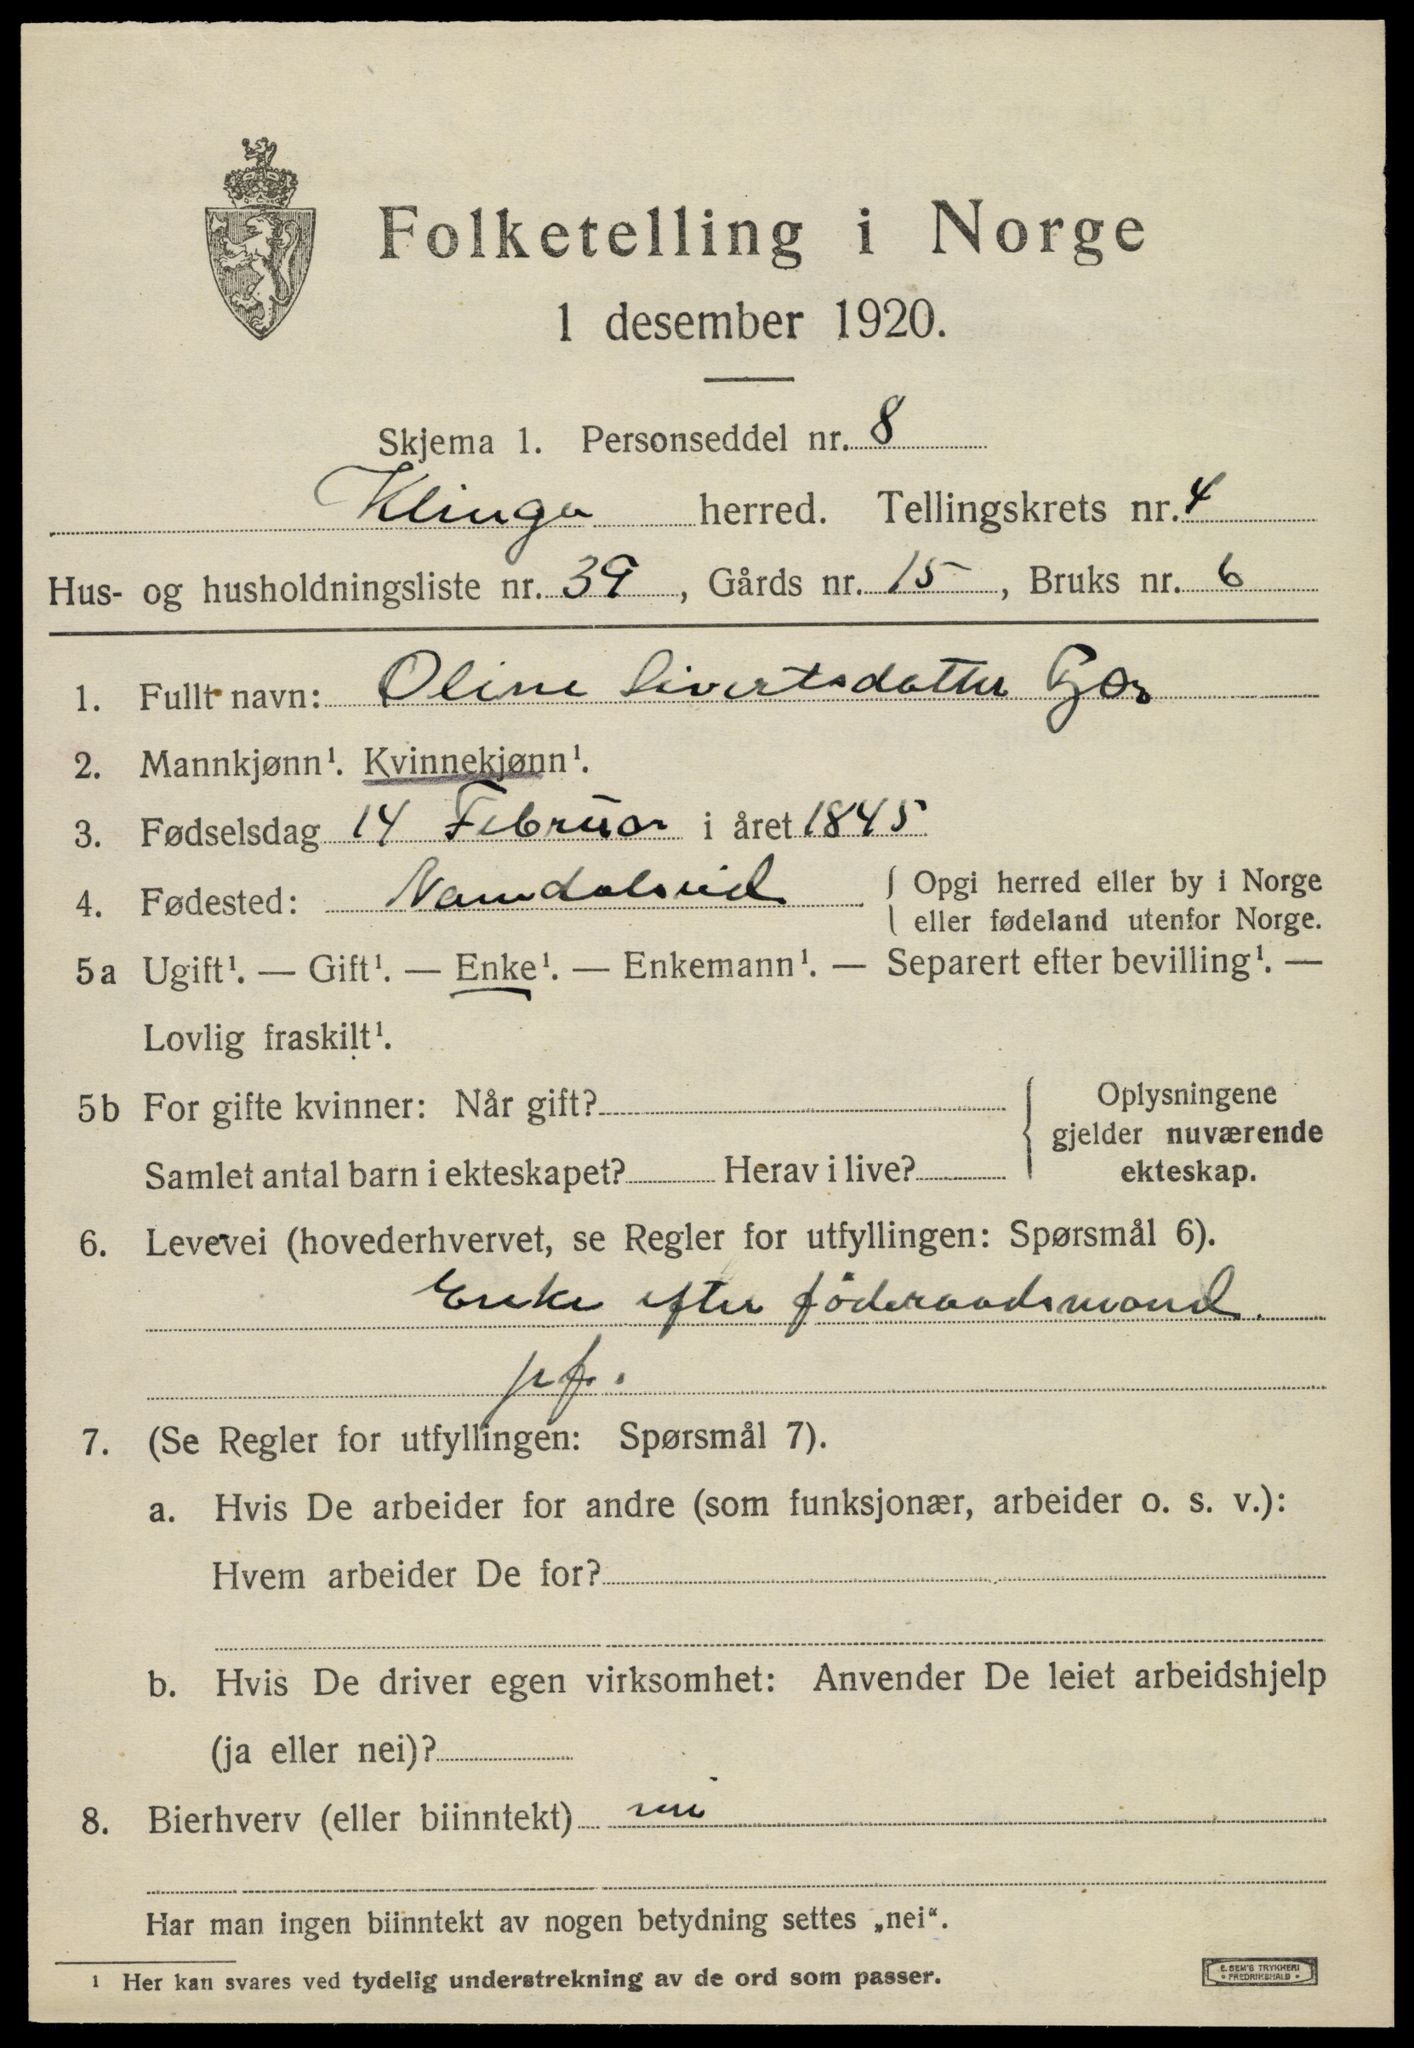 Folketelling i Norge
1 desember 1920.
Skjema 1. Personseddel nr. 8
Klinga herred. Tellingskrets nr. 4
Hus- og husholdningsliste nr. 39, Gårds nr. 15, Bruks nr. 6
1. Fullt navn: Oline Sivertsdatter
2. Mannkjønn¹. Kvinnekjønn¹.
3. Fødselsdag 14 Februar i året 1845
4. Fødested: Namdalseid { Opgi herred eller by i Norge
eller fødeland utenfor Norge.
5a Ugift¹. — Gift¹. — Enke¹. — Enkemann¹. — Separert efter bevilling¹. —
Lovlig fraskilt¹.
5b For gifte kvinner: Når gift? { Oplysningene
gjelder nuværende
Samlet antal barn i ekteskapet? Herav i live? ekteskap.
6. Levevei (hovederhvervet, se Regler for utfyllingen: Spørsmål 6).
Enke efter föderaadsmand.
7. (Se Regler for utfyllingen: Spørsmål 7).
a. Hvis De arbeider for andre (som funksjonær, arbeider o. s. v.):
Hvem arbeider De for?
b. Hvis De driver egen virksomhet: Anvender De leiet arbeidshjelp
(ja eller nei)?
8. Bierhverv (eller biinntekt) nei
Har man ingen biinntekt av nogen betydning settes „nei“.
¹ Her kan svares ved tydelig understrekning av de ord som passer.
E. SEM'S TRYKKERI
• FREDRIKSHALD •